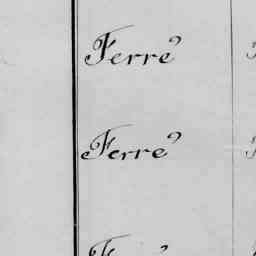 Ferre
Ferre